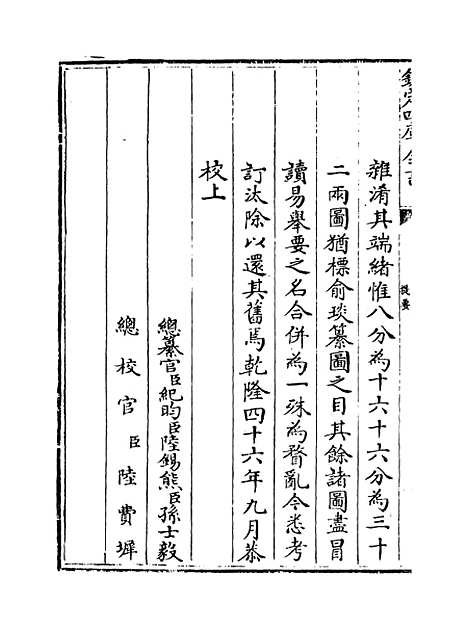 欽定四庫全書
提要
雜淆其端緒惟八分為十六十六分為三十
二兩圖猶標俞琰纂圖之目其餘諸圖盡冒
讀易舉要之名合併為一殊為瞀亂今悉考
訂汰除以還其舊焉乾隆四十六年九月恭
校上
總纂官臣紀昀臣陸錫熊臣孫士毅
總校官臣陸費墀